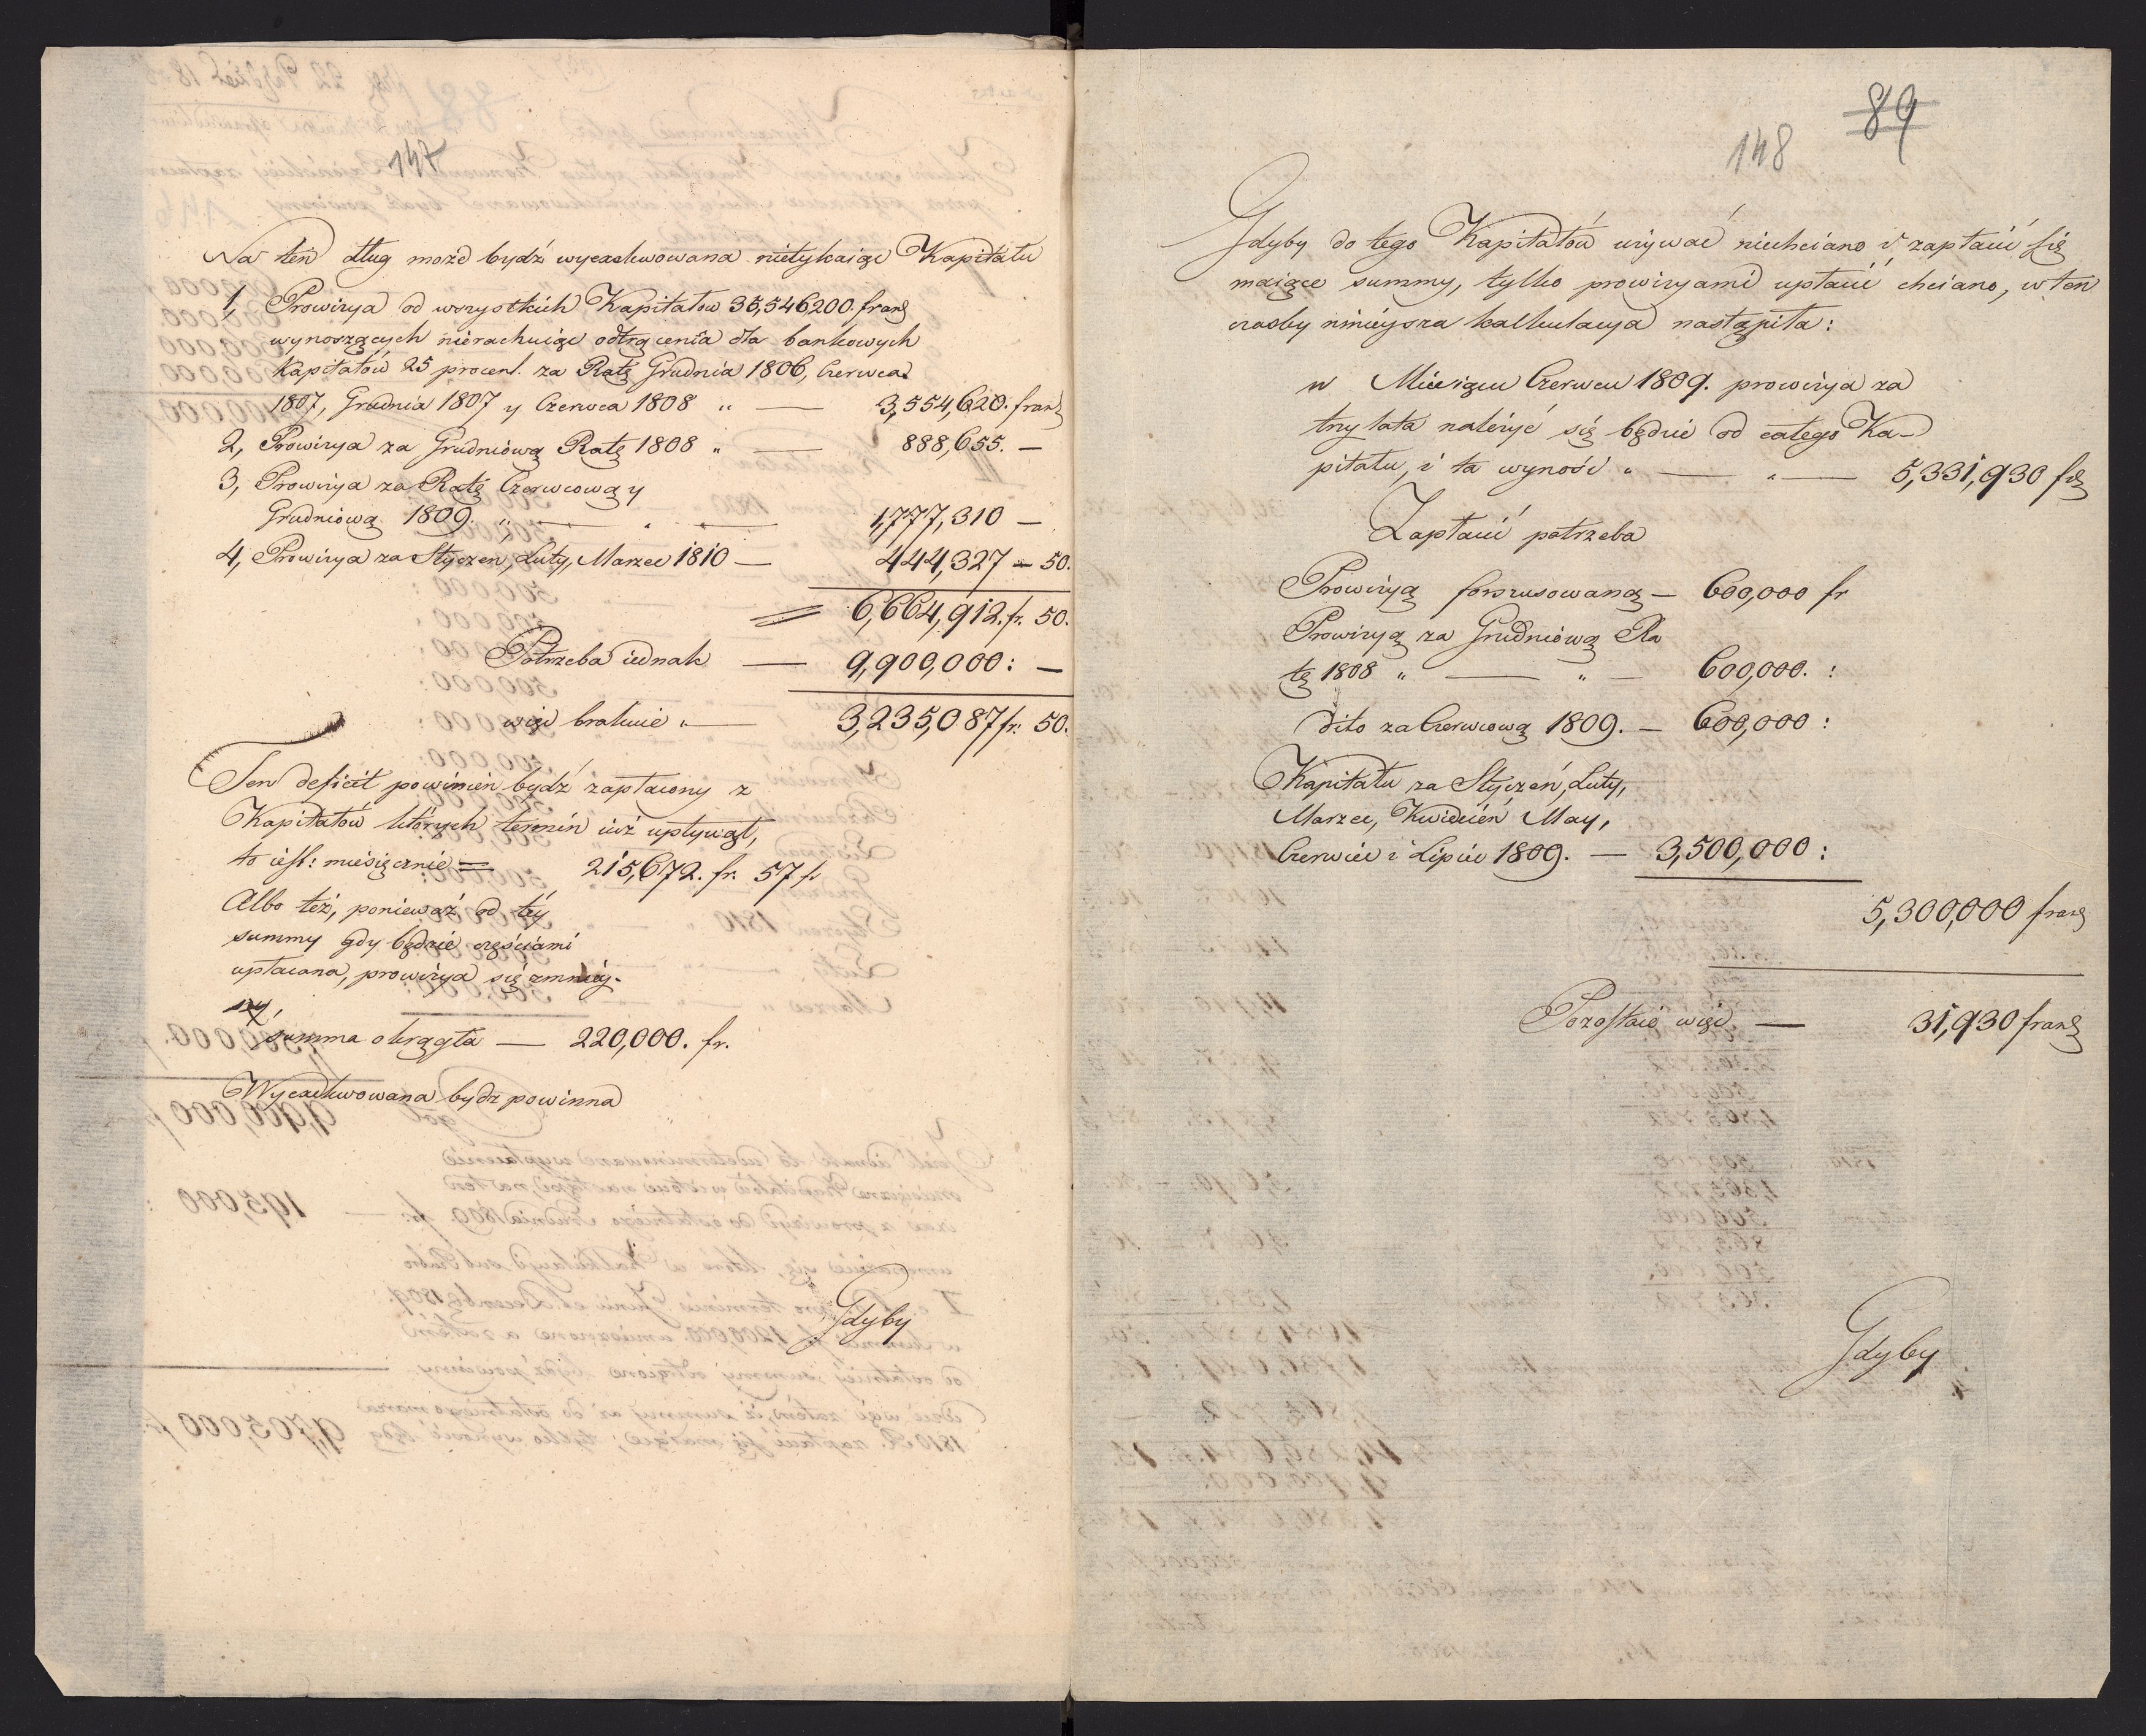 147
Na ten dług może bydź wyexekwowana nietykaiąc Kapitału
1, Prowizya od wszystkich Kapitałow 35,546200. frang
wynoszących nierachuiąc odtrącenia dla bankowych
Kapitałów 25 procent. za Ratę Grudnia 1806, Czerwca
1807, Grudnia 1807 y Czerwca 1808 „ — 3,554,620. frang
2, Prowizya za Grudniową Ratę 1808 „ — 888,655. —
3, Prowizya za Ratę Czerwcową y
Grudniową 1809. „ — „ — 1,777,310 —
4, Prowizya za Styczen, Luty, Marzec 1810 — 444,327 — 50.
= 6,664,912. fr. 50.
Potrzeba iednak — 9,900,000: —
więc brakuie „ — 3,235,087 fr: 50.
Ten deficit powinien bydź zapłacony z
Kapitałów których termin iuż upływał,
to iest: miesięcznie = 215,672. fr. 57 fr
Albo też, ponieważ od téy
summy gdy będzie częściami
upłacana, prowizya się zmniéy-
szy,
summa okrągła — 220,000. fr.
Wyexekwowana bydz powinna
Gdyby
89
148
Gdyby do tego Kapitałów używać niechciano i, zapłacić się
maiące summy, tylko prowizyami upłacić chciano, w ten
czasby ninieysza kalkulacya nastąpiła:
w Miesiącu Czerwcu 1809. prowizya za
trzy lata należyć się będzie od całego Ka-
pitału, i ta wynosi „ — „ — 5,331,930 frg
Zapłacić potrzeba
Prowizyą forszusowaną — 600,000 fr
Prowizyą za Grudniową Ra
tę 1808 „ — „ — 600,000. :
dito za Czerwcową 1809. — 600,000 :
Kapitału za Styczeń, Luty,
Marzec, Kwiecień May,
Czerwiec i Lipiec 1809. — 3,500,000 :
5,300,000 frang
Pozostaie więc — 31,930 frang
Gdyby